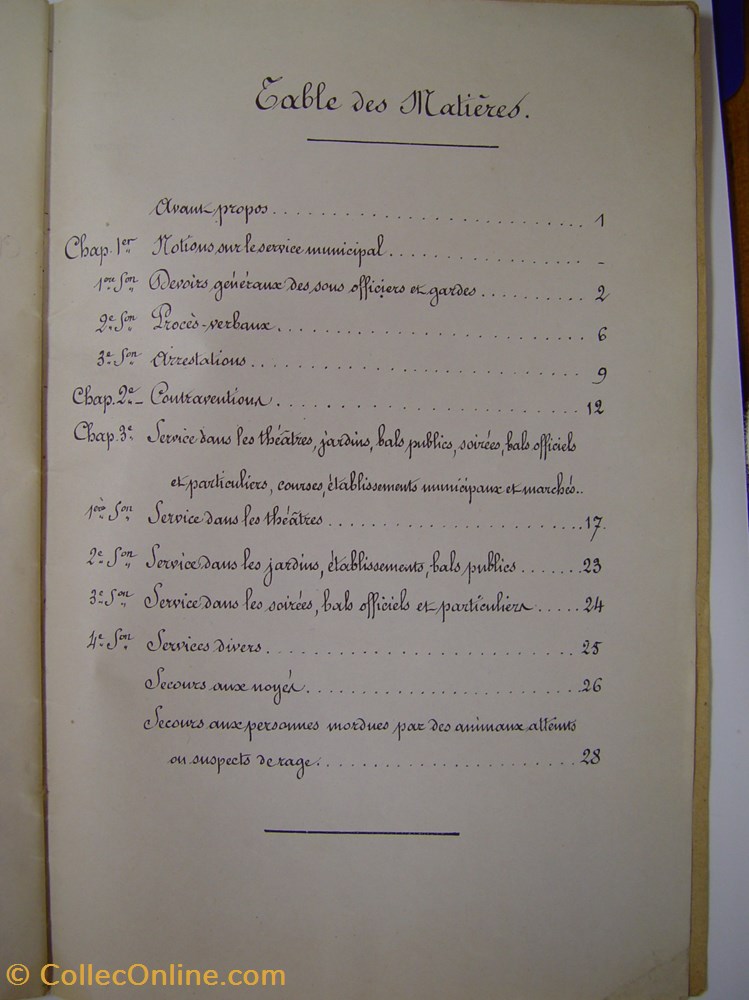 Table des Matières.
Avant-propos . . . . . 1
Chap. 1er Notions sur le service municipal . . . . . -
1ère Son Devoirs généraux des sous officiers et gardes . . . . . 2
2e Son Procès-verbaux . . . . . 6
3e Son Arrestations . . . . . 9
Chap. 2e - Contraventions . . . . . 12
Chap. 3e Service dans les théâtres, jardins, bals publics, soirées, bals officiels
et particuliers, courses, établissements municipaux et marchés..
1ère Son Service dans les théâtres . . . . . 17.
2e Son Service dans les jardins, établissements, bals publics . . . . . 23
3e Son Service dans les soirées, bals officiels et particuliers . . . . . 24
4e Son Services divers . . . . . 25
Secours aux noyés . . . . . 26
Secours aux personnes mordues par des animaux atteints
ou suspects de rage . . . . . 28
© CollecOnline.com